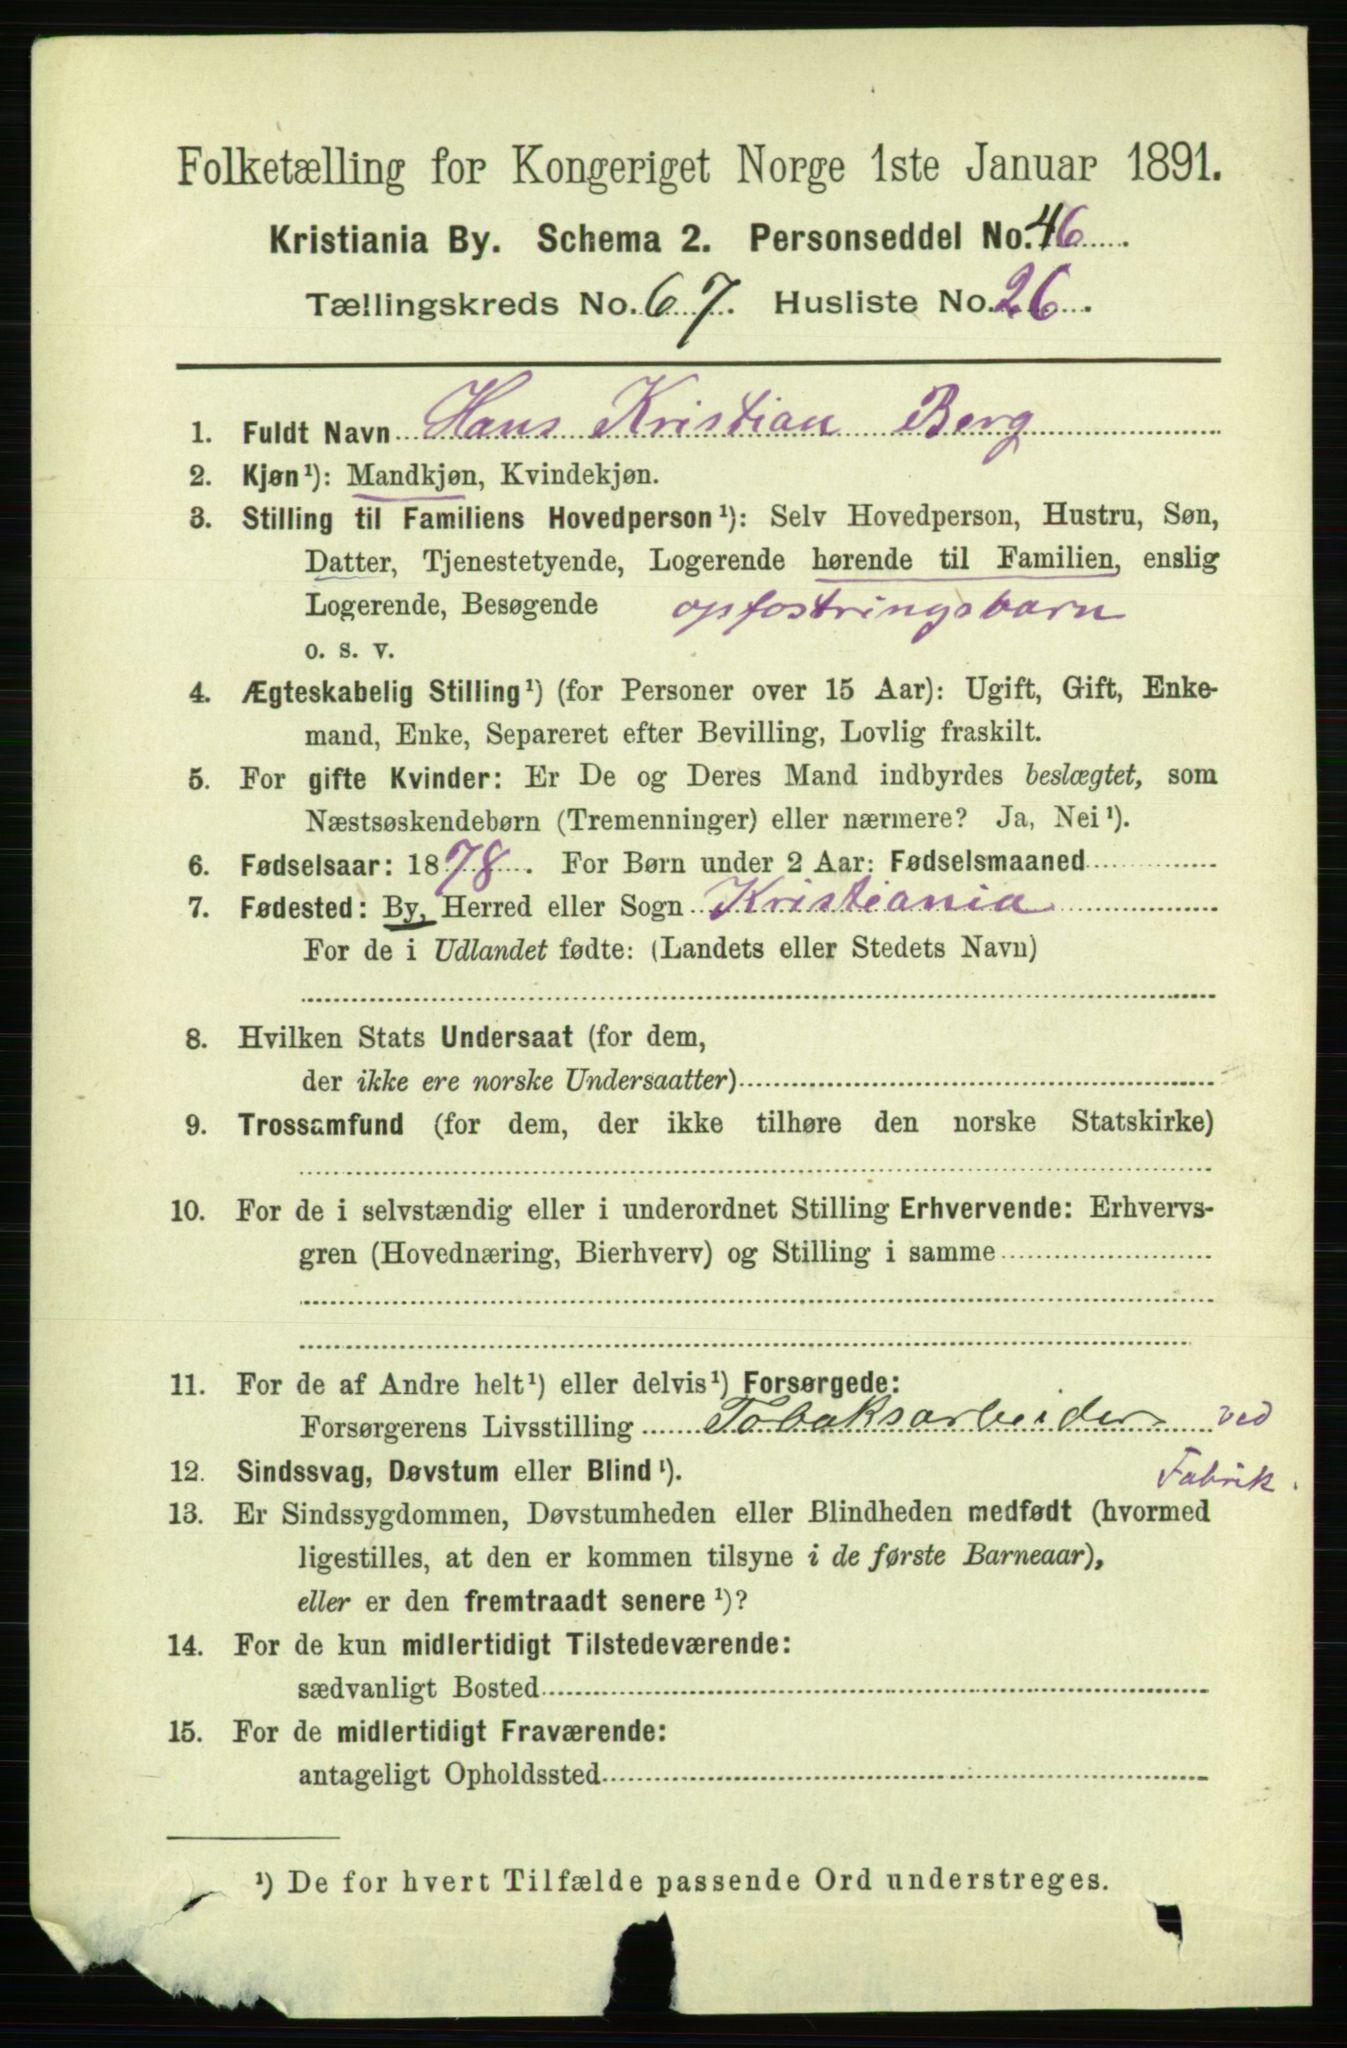 Folketælling for Kongeriget Norge 1ste Januar 1891.
Kristiania By. Schema 2. Personseddel No. 46
Tællingskreds No. 67. Husliste No. 26.
1. Fuldt Navn Hans Kristian Berg
2. Kjøn¹): Mandkjøn, Kvindekjøn.
3. Stilling til Familiens Hovedperson¹): Selv Hovedperson, Hustru, Søn,
Datter, Tjenestetyende, Logerende hørende til Familien, enslig
Logerende, Besøgende opfostringsbarn
o. s. v.
4. Ægteskabelig Stilling¹) (for Personer over 15 Aar): Ugift, Gift, Enke-
mand, Enke, Separeret efter Bevilling, Lovlig fraskilt.
5. For gifte Kvinder: Er De og Deres Mand indbyrdes beslægtet, som
Næstsøskendebørn (Tremenninger) eller nærmere? Ja, Nei¹).
6. Fødselsaar: 1878. For Børn under 2 Aar: Fødselsmaaned
7. Fødested: By, Herred eller Sogn Kristiania
For de i Udlandet fødte: (Landets eller Stedets Navn)
8. Hvilken Stats Undersaat (for dem,
der ikke ere norske Undersaatter)
9. Trossamfund (for dem, der ikke tilhøre den norske Statskirke)
10. For de i selvstændig eller i underordnet Stilling Erhvervende: Erhvervs-
gren (Hovednæring, Bierhverv) og Stilling i samme
11. For de af Andre helt¹) eller delvis¹) Forsørgede:
Forsørgerens Livsstilling Tobaksarbeider ved
Fabrik.
12. Sindssvag, Døvstum eller Blind¹).
13. Er Sindssygdommen, Døvstumheden eller Blindheden medfødt (hvormed
ligestilles, at den er kommen tilsyne i de første Barneaar),
eller er den fremtraadt senere¹)?
14. For de kun midlertidigt Tilstedeværende:
sædvanligt Bosted
15. For de midlertidigt Fraværende:
antageligt Opholdssted
¹) De for hvert Tilfælde passende Ord understreges.